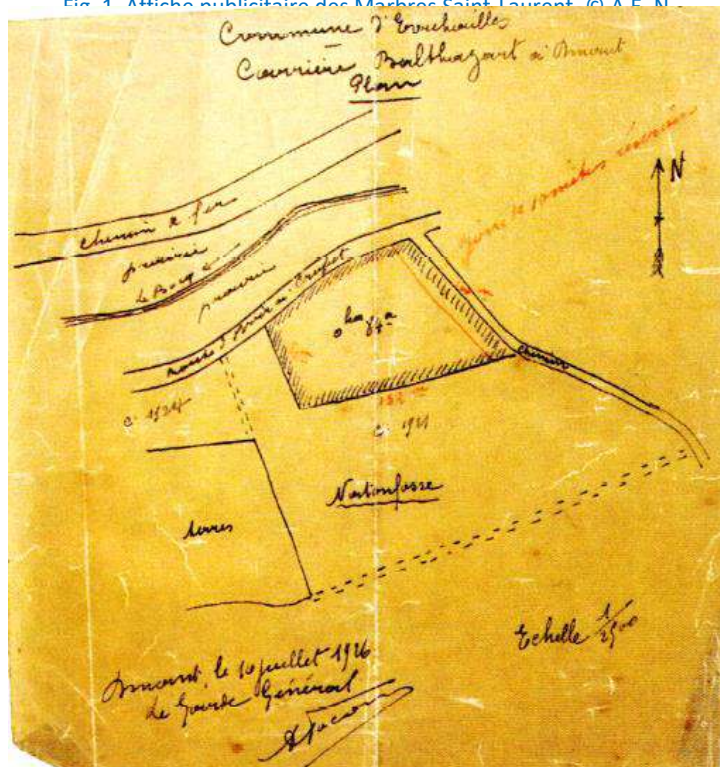 Fig. 1. Affiche publicitaire des Marbres Saint-Laurent. © A.E. N.
Commune d'Evrehailles
Carrière Balthazart à Dinant
Plan
N
chemin de fer
prairie
le Bocq
prairie
Route d'Yvoir à Crupet
0 ha 84 a
chemin
C 1921
Nertonfosse
terres
Echelle 1/2500
Dinant, le 10 juillet 1926
Le Garde Général